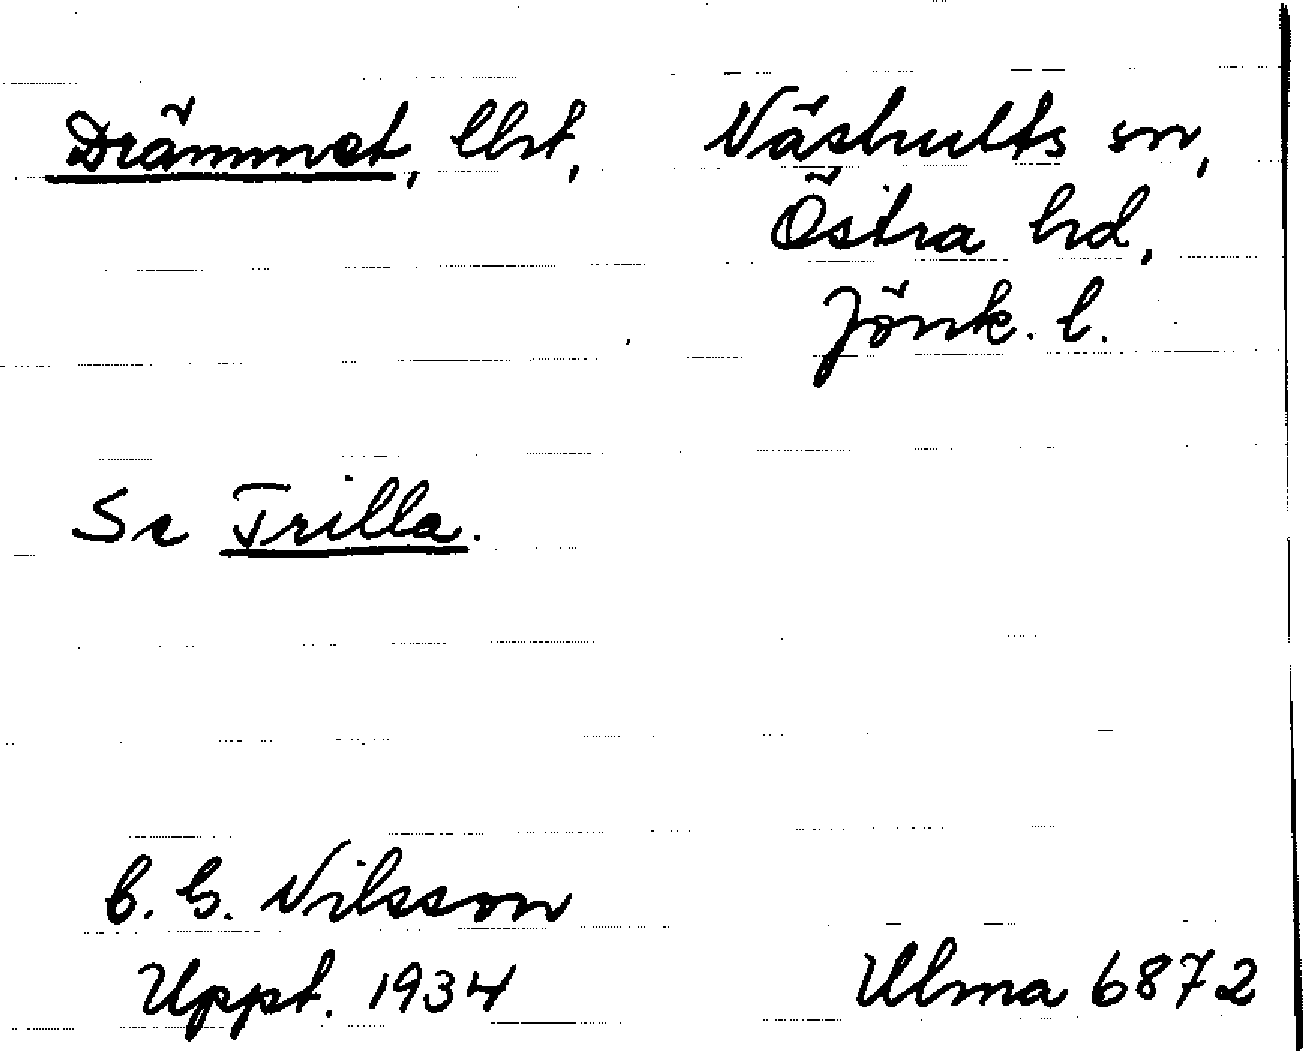 Drämmet, lht, Näshults sn,
Östra hd,
Jönk. l.
Se Trilla.
C. G. Nilsson
Uppt. 1934 Ulma 6872